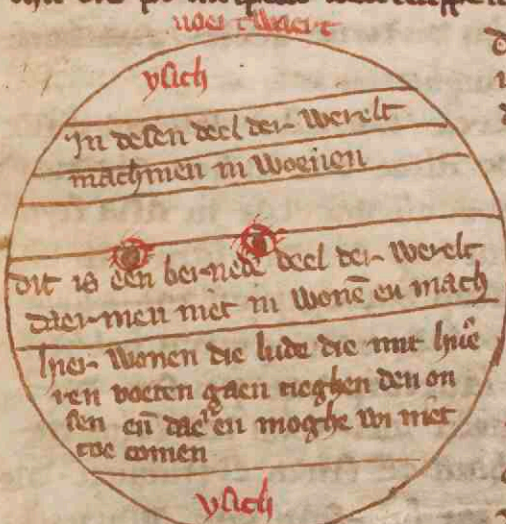 noertwaert
yslich
In desen deel der werelt
machmen in woenen
dit is een bernēde deel der werelt
daer men niet in wonē en mach
hier wonen die lude die mit hue
ren voeten gaen tieghen den on
sen eñ daer en moghē wi niet
toe comen
yslich